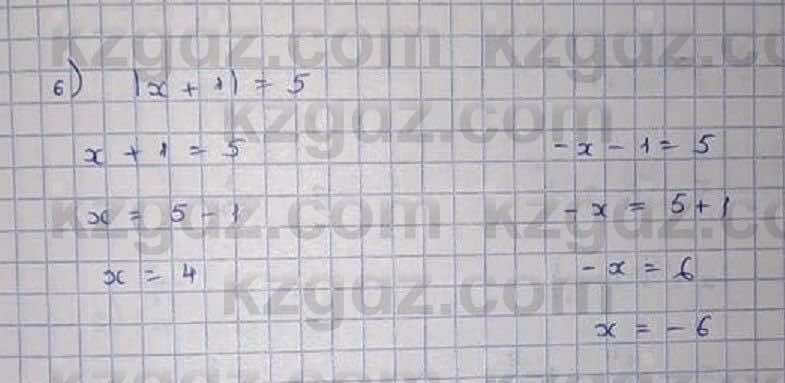 kzgdz.com kzgdz.co
б) |x + 1| = 5
kzgdz.com
x + 1 = 5
-x - 1 = 5
kzgdz.com kzgdz.co
x = 5 - 1
-x = 5 + 1
kzgdz.com
x = 4
-x = 6
x = -6